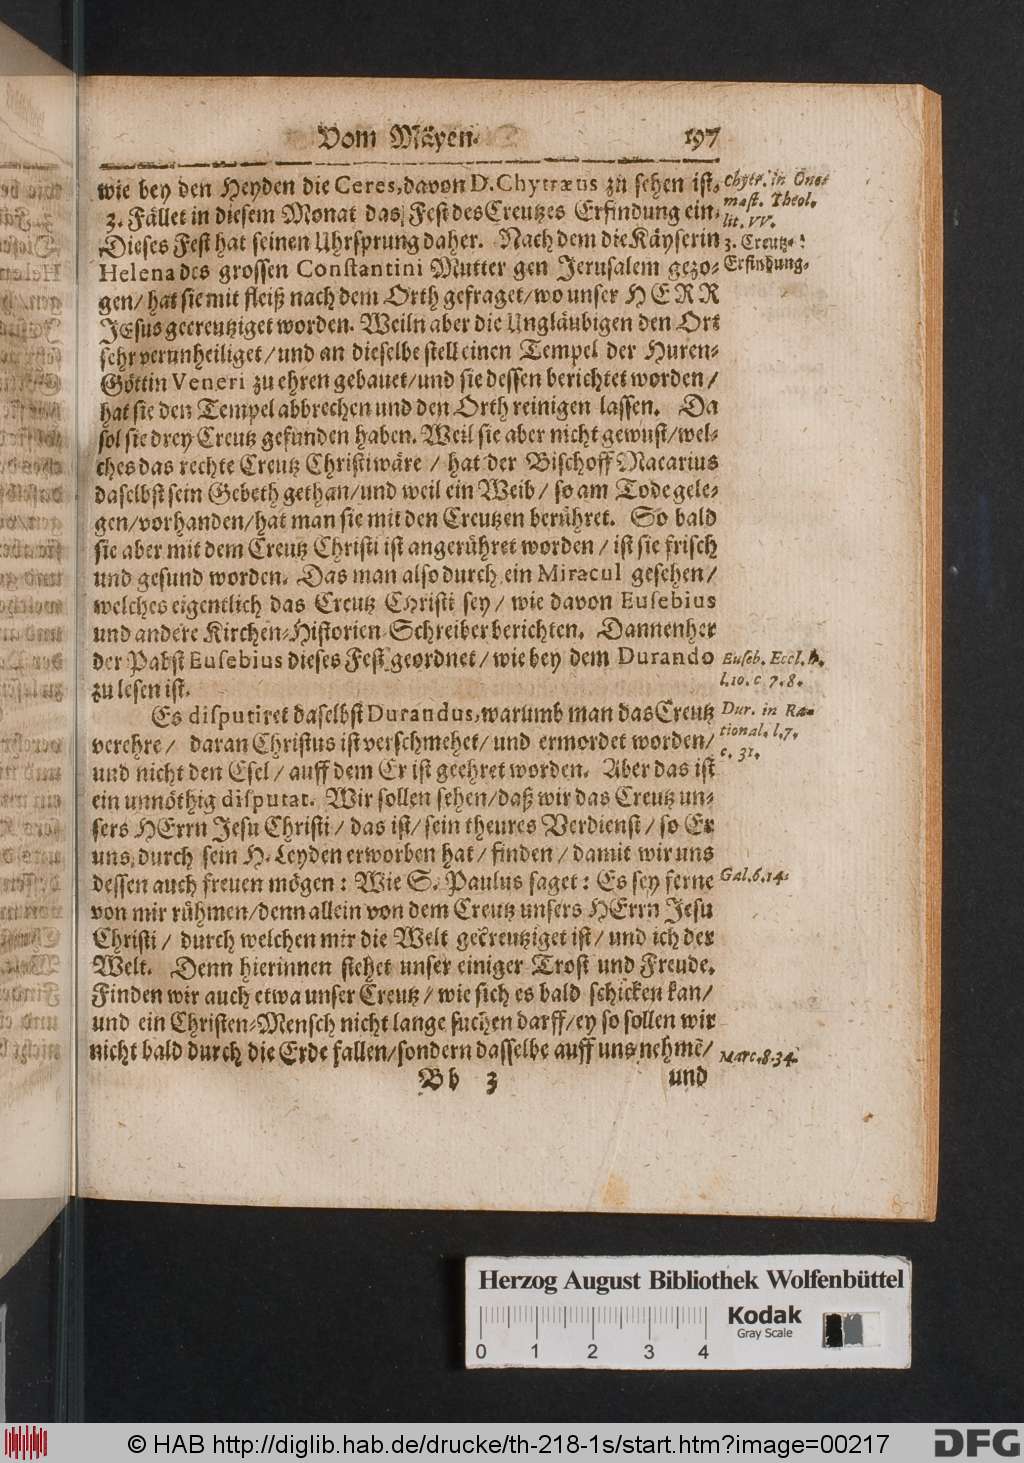 Vom Mäyen. 197
wie bey den Heyden die Ceres, davon D. Chytræus zu sehen ist.
Chytr. in Ono-
mast. Theol.
lit. VV.
3. Fället in diesem Monat das Fest des Creutzes Erfindung ein.
Dieses Fest hat seinen Uhrsprung daher. Nach dem die Käyserin
3. Creutz-
Erfindung.
Helena des grossen Constantini Mutter gen Jerusalem gezo-
gen/ hat sie mit fleiß nach dem Orth gefraget/ wo unser HERR
JEsus gecreutziget worden. Weiln aber die Ungläubigen den Ort
sehr verunheiliget/ und an dieselbe stell einen Tempel der Huren-
Göttin Veneri zu ehren gebauet/ und sie dessen berichtet worden/
hat sie den Tempel abbrechen und den Orth reinigen lassen. Da
sol sie drey Creutz gefunden haben. Weil sie aber nicht gewust/ wel-
ches das rechte Creutz Christi wäre / hat der Bischoff Macarius
daselbst sein Gebeth gethan/ und weil ein Weib/ so am Tode gele-
gen/ vorhanden/ hat man sie mit den Creutzen berühret. So bald
sie aber mit dem Creutz Christi ist angerühret worden / ist sie frisch
und gesund worden. Das man also durch ein Miracul gesehen/
welches eigentlich das Creutz Christi sey/ wie davon Eusebius
und andere Kirchen-Historien-Schreiber berichten. Dannenher
der Pabst Eusebius dieses Fest geordnet/ wie bey dem Durando
Euseb. Eccl. h.
l. 10. c 7. 8.
zu lesen ist.
Es disputiret daselbst Durandus, warumb man das Creutz
Dur. in Ra-
tional. l. 7.
c. 31.
verehre/ daran Christus ist verschmehet/ und ermordet worden/
und nicht den Esel/ auff dem Er ist geehret worden. Aber das ist
ein unnöthig disputat. Wir sollen sehen/ daß wir das Creutz un-
sers HErrn Jesu Christi/ das ist/ sein theures Verdienst/ so Er
uns durch sein H. Leyden erworben hat/ finden/ damit wir uns
dessen auch freuen mögen: Wie S. Paulus saget: Es sey ferne
Gal. 6. 14.
von mir rühmen/ denn allein von dem Creutz unsers HErrn Jesu
Christi/ durch welchen mir die Welt gecreutziget ist/ und ich der
Welt. Denn hierinnen stehet unser einiger Trost und Freude.
Finden wir auch etwa unser Creutz/ wie sich es bald schicken kan/
und ein Christen-Mensch nicht lange suchen darff/ ey so sollen wir
nicht bald durch die Erde fallen/ sondern dasselbe auff uns nehmē/
Marc. 8. 34.
Bb 3 und
Herzog August Bibliothek Wolfenbüttel
Kodak
Gray Scale
0 1 2 3 4
© HAB http://diglib.hab.de/drucke/th-218-1s/start.htm?image=00217
DFG